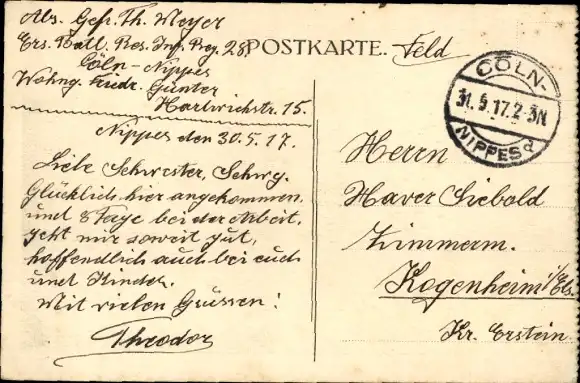 Abs. Gefr. Th. Meyer
Ers. Batl. Res. Inf. Reg. 28
Cöln-Nippes
Wohng. Friedr. Günter
Hartwichstr. 15.
Nippes den 30.5.17.
Liebe Schwester, Schwg.
Glücklich hier angekommen,
und 8 Tage bei der Arbeit.
geht mir soweit gut,
hoffendlich auch bei euch
und Kinder.
Mit vielen Grüssen!
Theodor
POSTKARTE. Feld
CÖLN-
31.5.17.2-3N
NIPPES d
Herrn
Xaver Siebold
Zimmerm.
Kogenheim i/Els.
Kr. Erstein